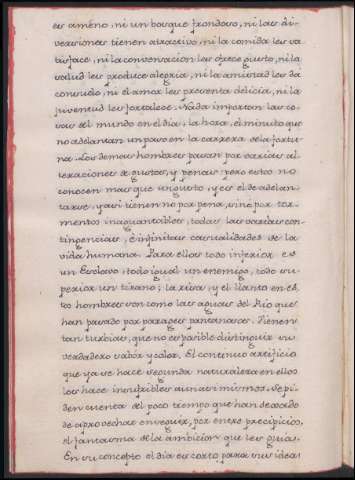 es ameno, ni un bosque frondoso, ni las di-
versiones tienen atractivo, ni la comida les sa
tisface, ni la conversacion les ofrece gusto, ni la
salud les produce alegria, ni la amistad les da
consuelo, ni el amor les presenta delicia, ni la
juventud les fortalece. Nada importan las co-
sas del mundo en el dia, la hora, el minuto que
no adelantan un paso en la carrera de la fortu-
na. Los demas hombres pasan por varias al
teraciones de gustos, y penas; pero estos no
conocen mas que un gusto, y es el de adelan-
tarse, y asi tienen no por pena, sino por tor-
mentos inaguantables, todas las varias con-
tingencias, è infinitas casualidades de la
vida humana. Para ellos todo inferior es
un Esclavo, todo igual un enemigo, todo su-
perior un tirano; la risa, y el llanto en es
tos hombres son como las aguas del Rio que
han pasado por parages pantanosos. Vienen
tan turbias, que no es posible distinguir su
verdadero sabor y color. El continuo artificio
que ya se hace segunda naturaleza en ellos
los hace insufribles aun a si mismos. Se pi-
den cuenta del poco tiempo que han dexado
de aprovechar en seguir, por entre precipicios,
el fantasma de la ambicion que les guia.
En su concepto el dia es corto para sus ideas